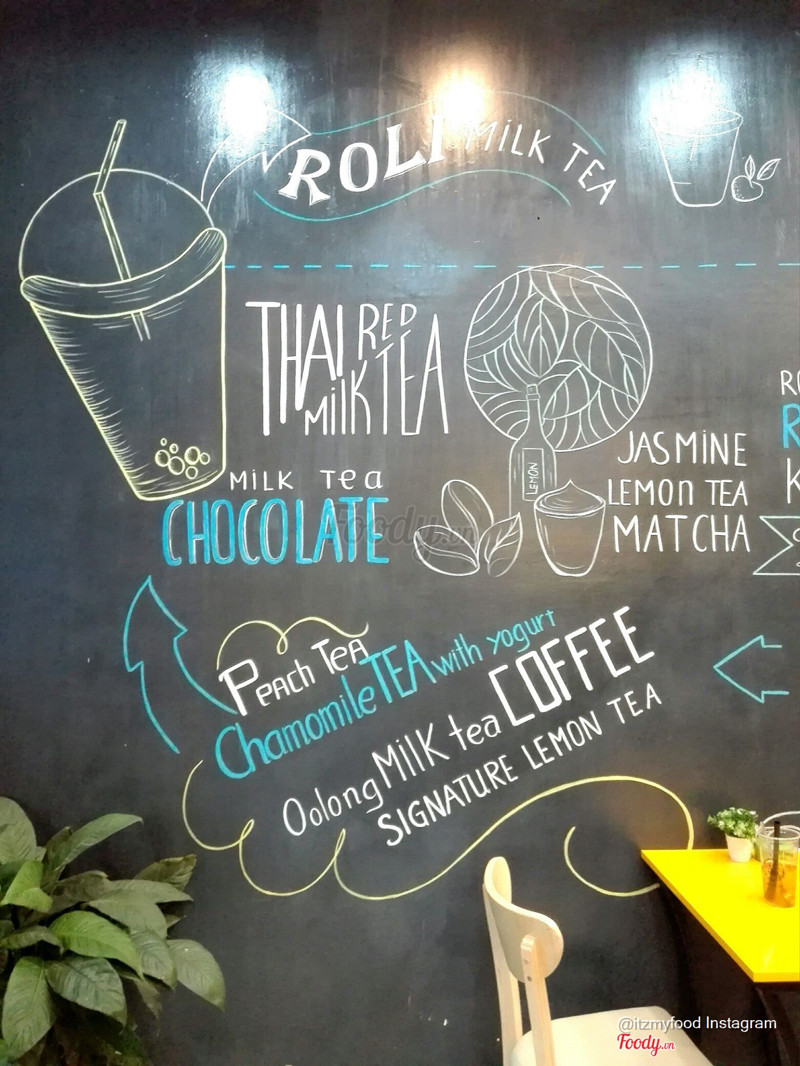 ROLI MILK TEA
THAI RED
MILK TEA
MILK TEA
CHOCOLATE
LEMON
JASMINE
LEMON TEA
MATCHA
Foody.vn
PEACH TEA
Chamomile TEA with yogurt
Oolong MILK tea COFFEE
SIGNATURE LEMON TEA
@itzmyfood Instagram
Foody.vn